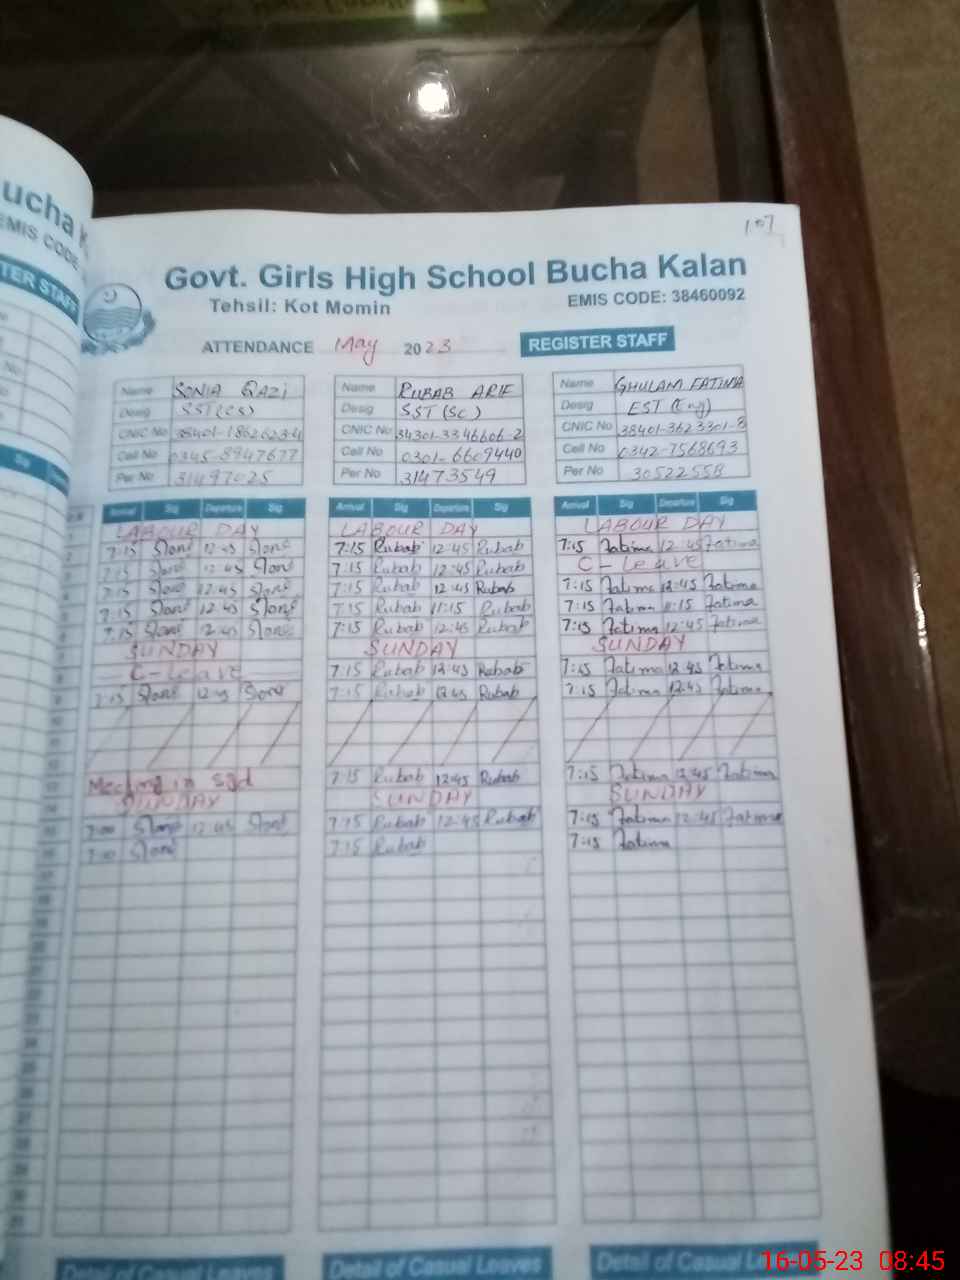 ucha K
EMIS CODE
TER STAFF
107
Govt. Girls High School Bucha Kalan
Tehsil: Kot Momin EMIS CODE: 38460092
ATTENDANCE May 2023 REGISTER STAFF
Name SONIA QAZI Name RUBAB ARIF Name GHULAM FATIMA
Desig SST(CS) Desig SST (Sc) Desig EST (Eng)
CNIC No CNIC No CNIC No
Cell No Cell No 0301-6609440 Cell No 0342-7568693
Per No 31497025 Per No 31473549 Per No 30522558
Arrival Sig Departure Sig Arrival Sig Departure Sig Arrival Sig Departure Sig
LABOUR DAY LABOUR DAY LABOUR DAY
7:15 12:45 7:15 Rubab 12:45 Rubab 7:15 Fatima 12:45 Fatima
7:15 12:45 7:15 Rubab 12:45 Rubab C-Leave
7:15 12:45 7:15 Rubab 12:45 Rubab 7:15 Fatima 12:45 Fatima
7:15 12:45 7:15 Rubab 11:15 Rubab 7:15 Fatima 11:15 Fatima
7:15 12:45 7:15 Rubab 12:45 Rubab 7:15 Fatima 12:45 Fatima
SUNDAY SUNDAY SUNDAY
C-Leave 7:15 Rubab 12:45 Rubab 7:15 Fatima 12:45 Fatima
7:15 12:45 7:15 Rubab 12:45 Rubab 7:15 Fatima 12:45 Fatima
Meeting in Sgd 7:15 Rubab 12:45 Rubab 7:15 Fatima 12:45 Fatima
SUNDAY SUNDAY SUNDAY
7:00 12:45 7:15 Rubab 12:45 Rubab 7:15 Fatima 12:45 Fatima
7:00 7:15 Rubab 7:15 Fatima
Detail of Casual Leaves Detail of Casual Leaves Detail of Casual
16-05-23 08:45